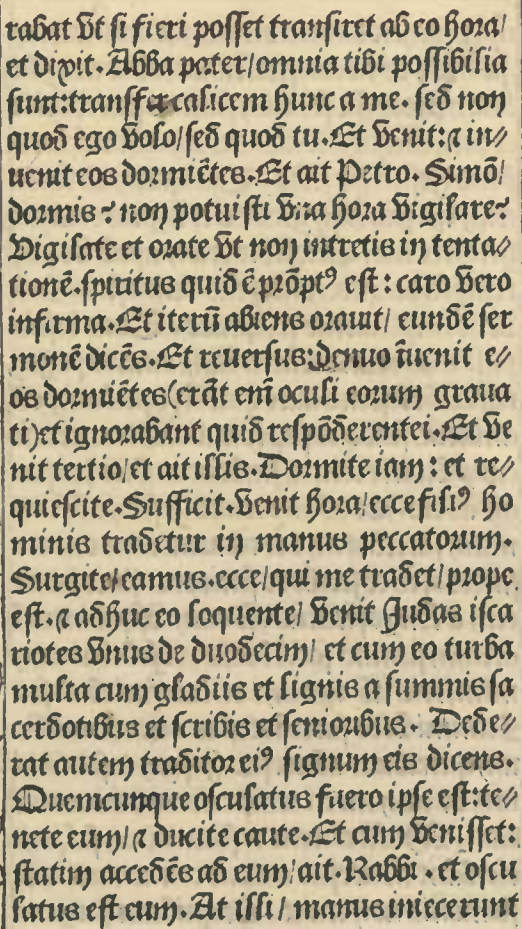 rabat vt si fieri posset transiret ab eo hora/
et dixit. Abba pater/omnia tibi possibilia
sunt:transfer calicem hunc a me. sed non
quod ego volo/sed quod tu. Et venit:⁊ in⸗
uenit eos dormiētes. Et ait Petro. Simō/
dormis? non potuisti vna hora vigilare?
Vigilate et orate vt non intretis in tenta⸗
tionē. spiritus quidē prōptꝰ est: caro vero
infirma. Et iterū abiens orauit/ eundē ser
monē dicēs. Et reuersus: denuo īuenit e⸗
os dormiētes(erāt em̄ oculi eorum graua
ti)et ignorabant quid respōderent ei. Et ve
nit tertio/et ait illis. Dormite iam: et re⸗
quiescite. Sufficit. venit hora/ecce filiꝰ ho
minis tradetur in manus peccatorum.
Surgite/eamus. ecce/qui me tradet/prope
est. ⁊ adhuc eo loquente/ venit Judas isca
riotes vnus de duodecim/ et cum eo turba
multa cum gladiis et lignis a summis sa
cerdotibus et scribis et senioribus. Dede⸗
rat autem traditor eiꝰ signum eis dicens.
Quemcunque osculatus fuero ipse est:te⸗
nete eum/⁊ ducite caute. Et cum venisset:
statim accedēs ad eum/ait. Rabbi. et oscu
latus est eum. At illi/ manus iniecerunt